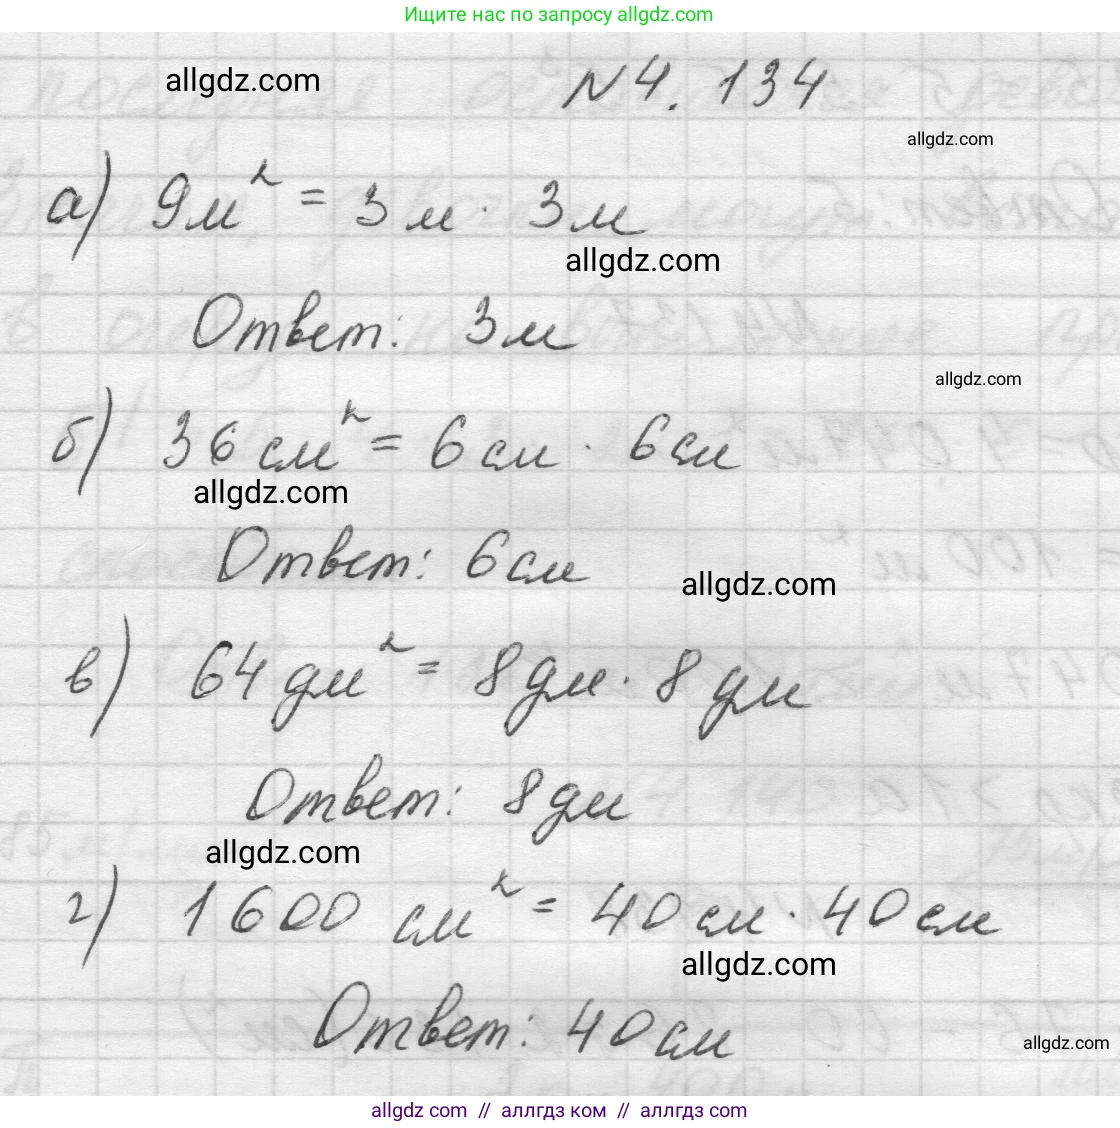 Ищите нас по запросу allgdz.com
allgdz.com
N 4. 134
allgdz.com
а) 9м² = 3м · 3м
allgdz.com
Ответ: 3м
allgdz.com
б) 36 см² = 6 см · 6 см
allgdz.com
Ответ: 6 см
allgdz.com
в) 64 дм² = 8 дм · 8 дм
Ответ: 8 дм
allgdz.com
г) 1600 см² = 40 см · 40 см
allgdz.com
Ответ: 40 см
allgdz.com
allgdz com // аллгдз ком // allgdz.com